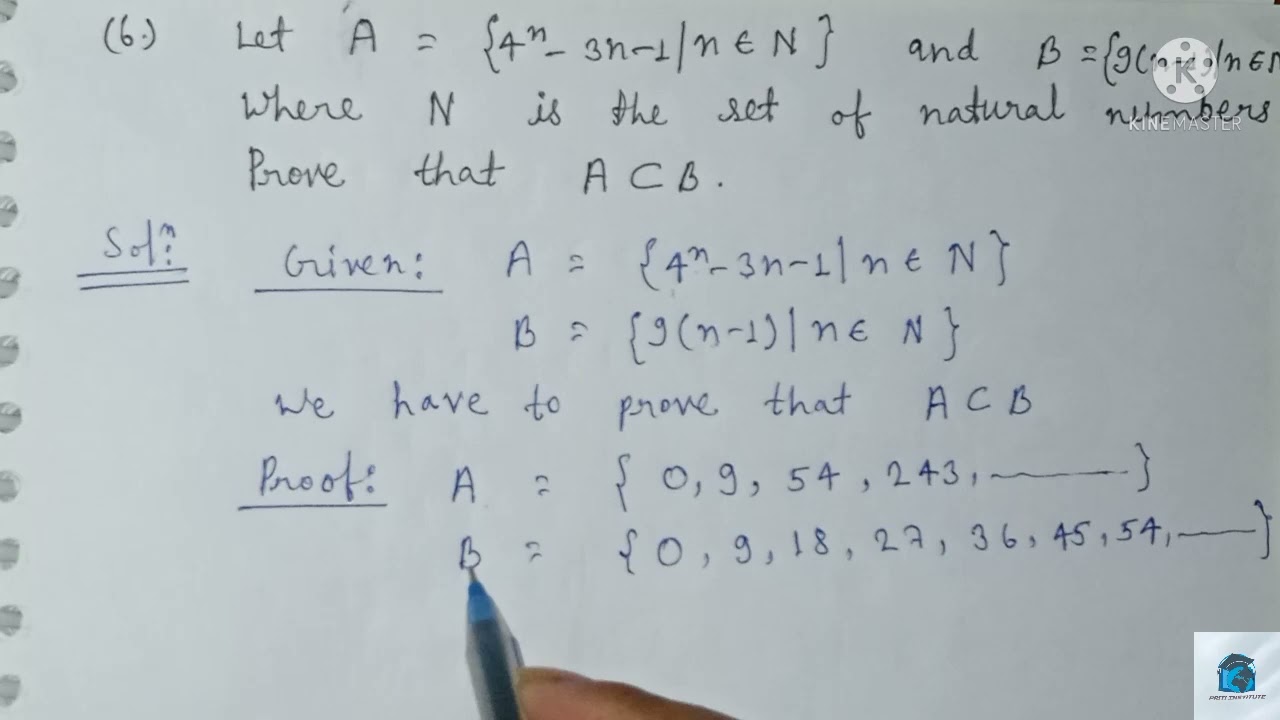 (6.) Let A = {4ⁿ - 3n - 1 | n ∈ N } and B = {9(n-1) | n ∈ N
where N is the set of natural numbers
Prove that A ⊂ B.
Solⁿ: Given: A = {4ⁿ - 3n - 1 | n ∈ N }
B = {9(n-1) | n ∈ N }
We have to prove that A ⊂ B
Proof: A = { 0, 9, 54, 243, ——— }
B = { 0, 9, 18, 27, 36, 45, 54, —— }
KINEMASTER
PRITI INSTITUTE